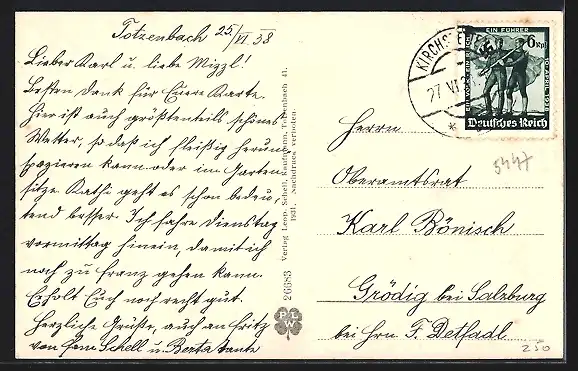 Totzenbach 25/VI 38
Lieber Karl u. liebe Mizzl!
Besten Dank für Euere Karte.
Hier ist auch größtenteils schönes
Wetter, so daß ich fleißig herum
spazieren kann oder im Garten
sitze. Kathi geht es schon bedeu,
tend besser. Ich fahre Dienstag
vormittag hinein, damit ich
noch zu Franz gehen kann.
Erholt Euch noch recht gut.
Herzliche Grüße, auch an Fritz
von Schell u. Berta tante
Verlag Leop. Schell, Kaufmann, Totzenbach 41.
1931. Nachdruck verboten.
26683
P L W
KIRCHST
27. VI
EIN FÜHRER
6 Rpf
10. APRIL 1938
Deutsches Reich
Herrn
Oberamtsrat
Karl Bönisch
Grödig bei Salzburg
bei Hrn. F. Detfadl.
5447
250